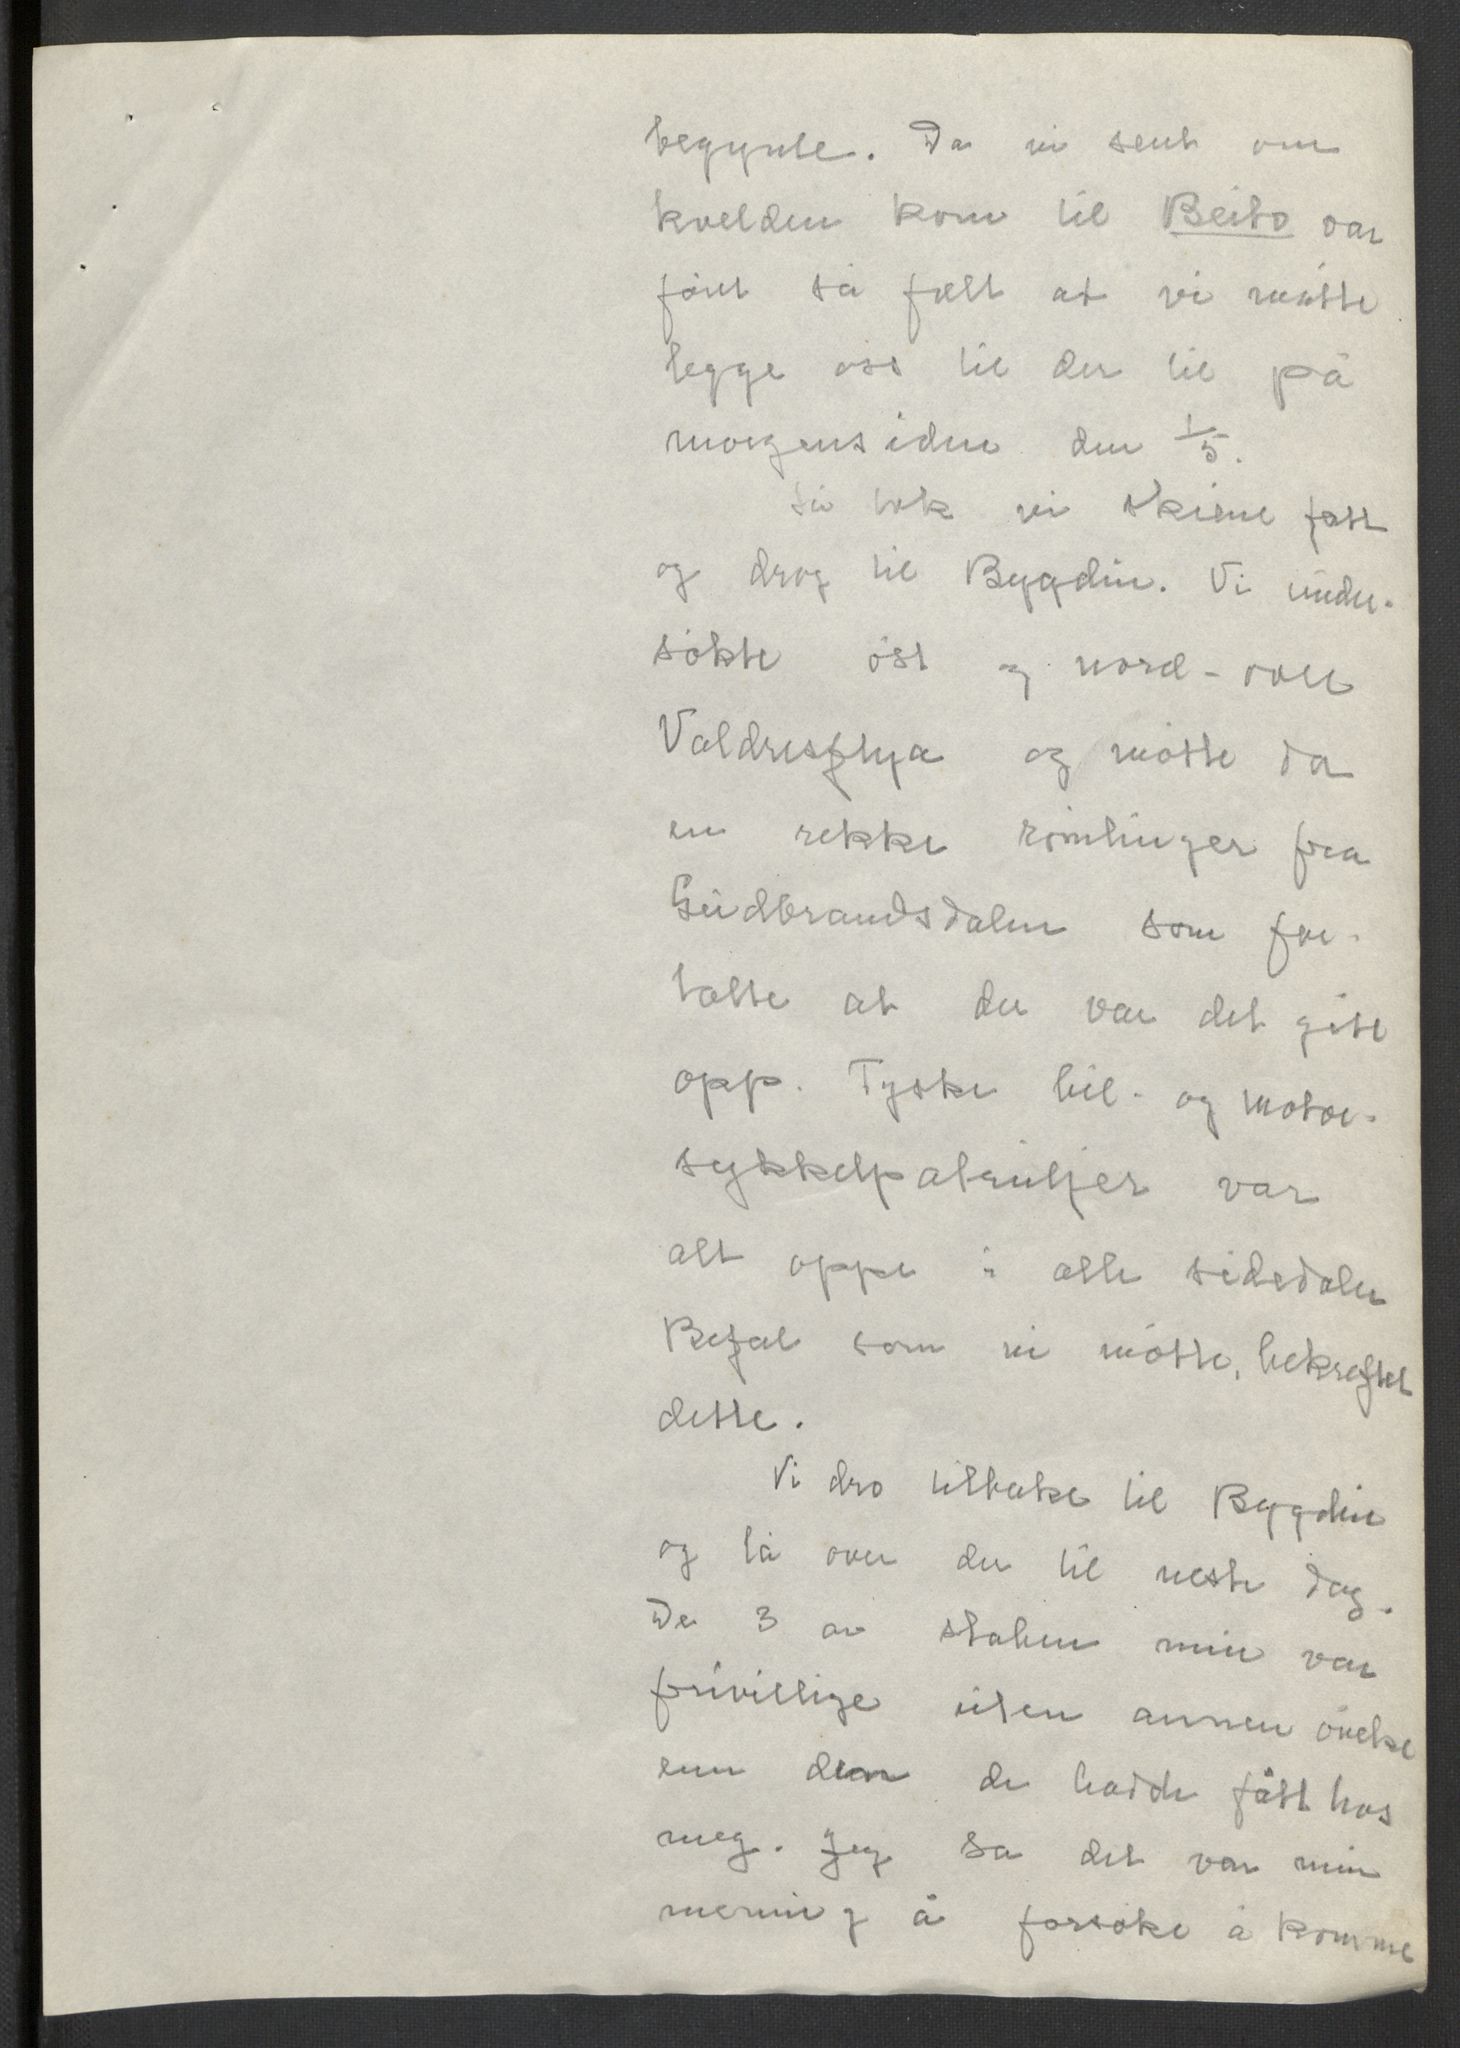 begynte. Da vi sent om
kvelden kom til Beito var
føret så fælt at vi måtte
legge oss til der til på
morgensiden den 1/5.
Så tok vi skiene fatt
og drog til Bygdin. Vi under-
søkte øst og nord-over
Valdresflya og møtte da
en rekke rømlinger fra
Gudbrandsdalen som for-
talte at der var det gitt
opp. Tyske bil- og motor-
sykkelpatruljer var
alt oppe i alle sidedaler
Befal som vi møtte, bekreftet
dette.
Vi dro tilbake til Bygdin
og lå over der til neste dag.
De 3 av staben min var
frivillige uten annen øvelse
enn den de hadde fått hos
meg. Jeg sa det var min
mening å forsøke å komme